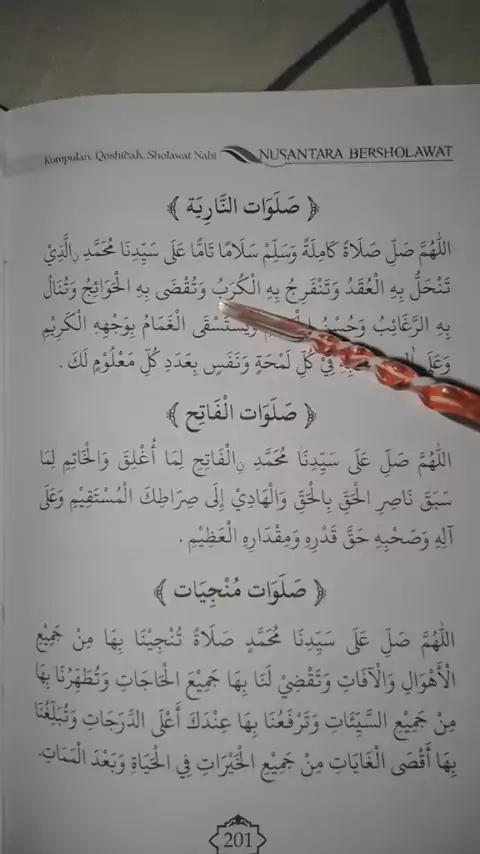 Kumpulan Qoshidah, Sholawat Nabi NUSANTARA BERSHOLAWAT
﴿ صَلَوَات النَّارِيَة ﴾
اَللّٰهُمَّ صَلِّ صَلَاةً كَامِلَةً وَسَلِّمْ سَلَامًا تَامًّا عَلَى سَيِّدِنَا مُحَمَّدِ ࣙالَّذِيْ
تَنْحَلُّ بِهِ الْعُقَدُ وَتَنْفَرِجُ بِهِ الْكُرَبُ وَتُقْضَى بِهِ الْحَوَائِجُ وَتُنَالُ
بِهِ الرَّغَائِبُ وَحُسْنُ وَيُسْتَسْقَى الْغَمَامُ بِوَجْهِهِ الْكَرِيْمِ
وَعَلَى فِيْ كُلِّ لَمْحَةٍ وَنَفَسٍ بِعَدَدِ كُلِّ مَعْلُوْمٍ لَكَ .
﴿ صَلَوَات الْفَاتِح ﴾
اَللّٰهُمَّ صَلِّ عَلَى سَيِّدِنَا مُحَمَّدِ ࣙالْفَاتِحِ لِمَا أُغْلِقَ وَالْخَاتِمِ لِمَا
سَبَقَ نَاصِرِ الْحَقِّ بِالْحَقِّ وَالْهَادِيْ إِلَى صِرَاطِكَ الْمُسْتَقِيْمِ وَعَلَى
آلِهِ وَصَحْبِهِ حَقَّ قَدْرِهِ وَمِقْدَارِهِ الْعَظِيْمِ .
﴿ صَلَوَات مُنْجِيَات ﴾
اَللّٰهُمَّ صَلِّ عَلَى سَيِّدِنَا مُحَمَّدٍ صَلَاةً تُنْجِيْنَا بِهَا مِنْ جَمِيْعِ
الْأَهْوَالِ وَالْآفَاتِ وَتَقْضِيْ لَنَا بِهَا جَمِيْعَ الْحَاجَاتِ وَتُطَهِّرُنَا بِهَا
مِنْ جَمِيْعِ السَّيِّئَاتِ وَتَرْفَعُنَا بِهَا عِنْدَكَ أَعْلَى الدَّرَجَاتِ وَتُبَلِّغُنَا
بِهَا أَقْصَى الْغَايَاتِ مِنْ جَمِيْعِ الْخَيْرَاتِ فِي الْحَيَاةِ وَبَعْدَ الْمَمَاتِ.
201